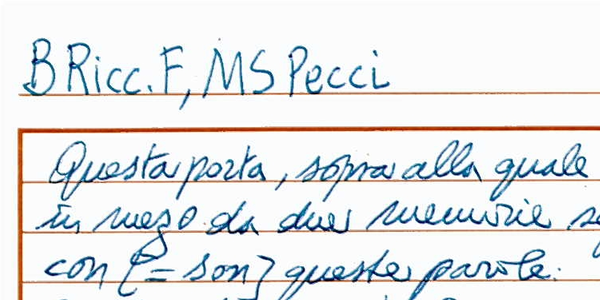 B Ricc. F, MS Pecci
Questa porta, sopra alla quale
in mezo da due memorie
con [= son] queste parole: